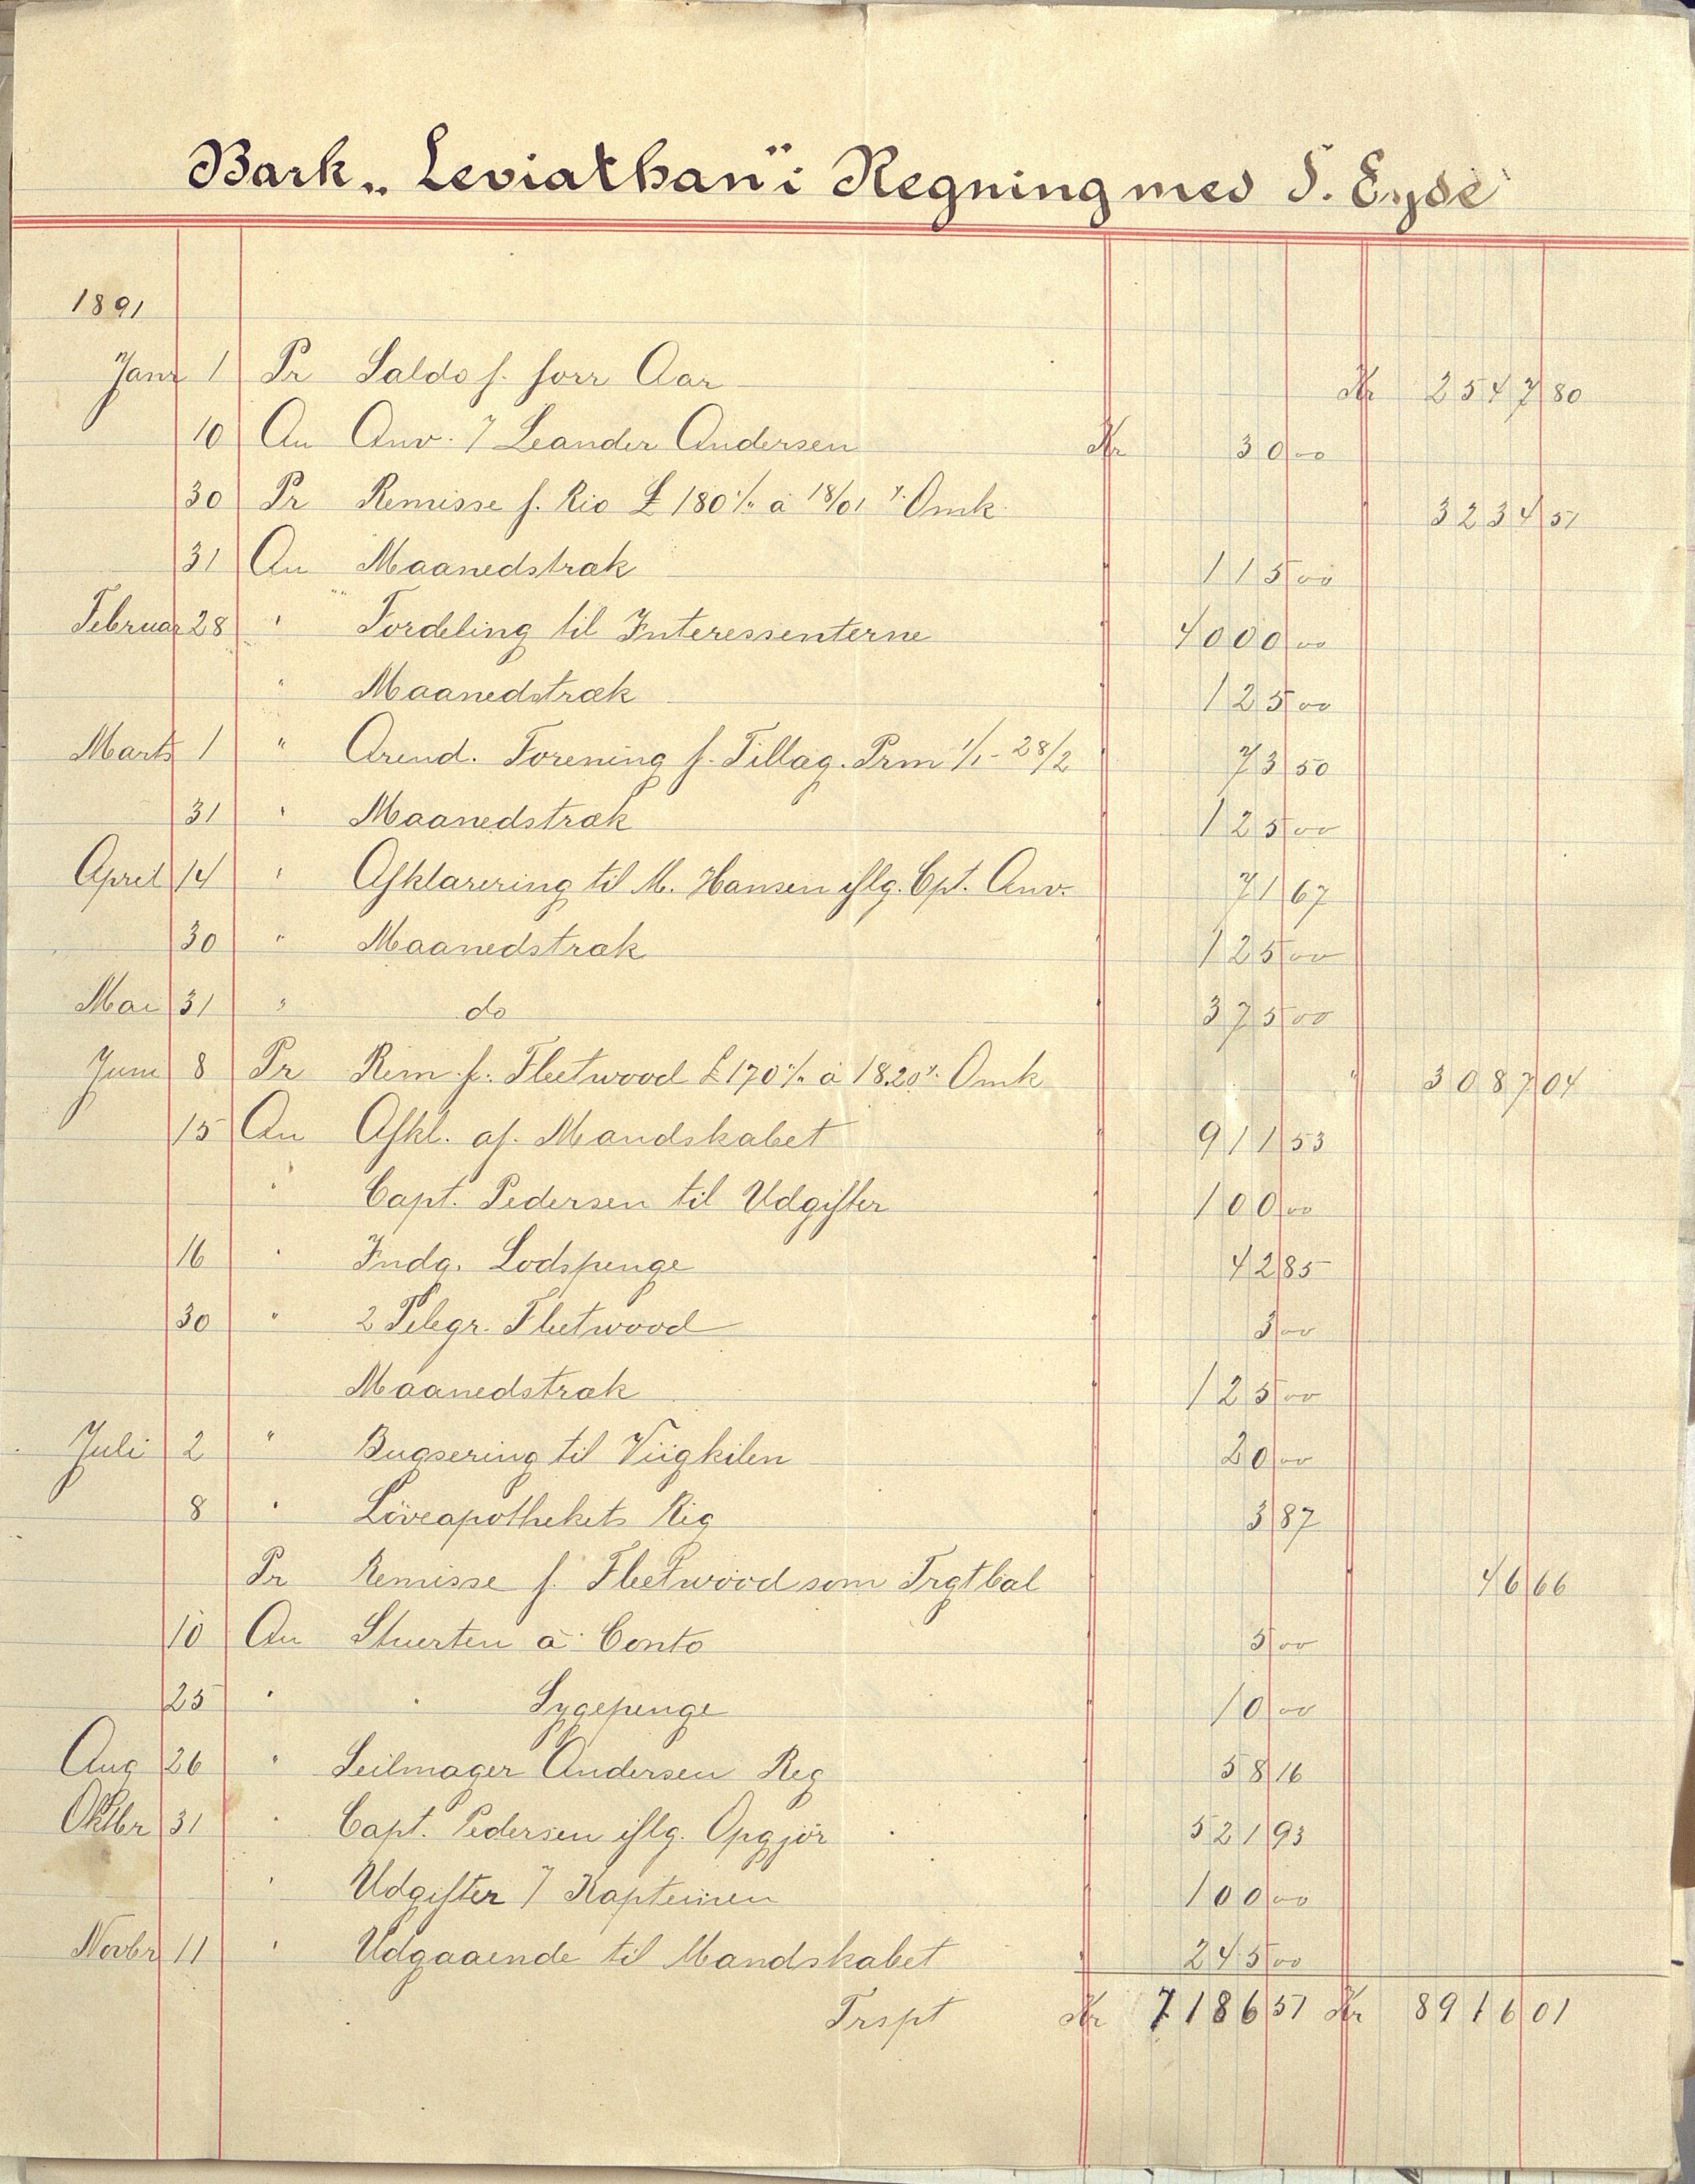 Bark „Leviathan" i Regning med S. Eyde
1891
Janr 1 Pr Saldo f. forr Aar Kr 2547 80
10 An Anv. / Leander Andersen Kr 30 00
30 Pr Remisse f. Rio £ 180 ./. a 18/01 ./. Omk " 3234 51
31 An Maanedstræk " 115 00
Februar 28 " Fordeling til Interessenterne " 4000 00
" Maanedstræk " 125 00
Marts 1 " Arend. Forening f. Tillæg. Prm 1/1 - 28/2 " 73 50
31 " Maanedstræk " 125 00
April 14 " Afklarering til M. Hansen iflg. Cpt. Anv. " 71 67
30 " Maanedstræk " 125 00
Mai 31 " do " 375 00
Juni 8 Pr Rem. f. Fleetwood £ 170 ./. a 18.20 ./. Omk " 3087 04
15 An Afkl. af Mandskabet " 911 53
" Capt. Pedersen til Udgifter " 100 00
16 " Indg. Lodspenge " 42 85
30 " 2 Telegr. Fleetwood " 3 00
Maanedstræk " 125 00
Juli 2 " Bugsering til Viigkilen " 20 00
8 " Löveapothekets Rig " 3 87
Pr Remisse f. Fleetwood som Frgtbal " 46 66
10 An Stuerten a Conto " 5 00
25 " " Sygepenge " 10 00
Aug 26 " Seilmager Andersen Reg " 58 16
Oktbr 31 " Capt. Pedersen iflg. Opgjör " 521 93
" Udgifter / Kapteinen " 100 00
Novbr 11 " Udgaaende til Mandskabet " 245 00
Trspt Kr 7186 51 Kr 8916 01